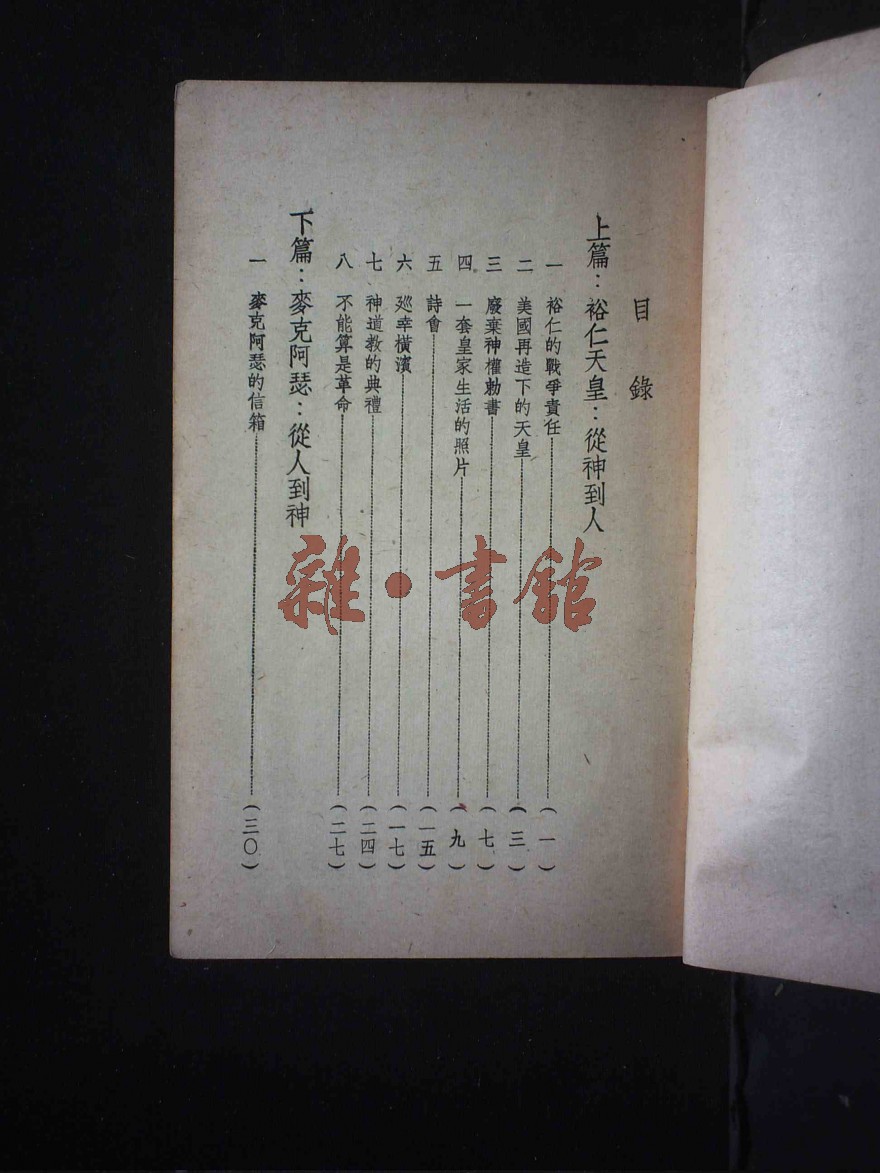 目錄
上篇：裕仁天皇：從神到人
一 裕仁的戰爭責任(一)
二 美國再造下的天皇(三)
三 廢棄神權勅書(七)
四 一套皇家生活的照片(九)
五 詩會(一五)
六 廵幸橫濱(一七)
七 神道教的典禮(二四)
八 不能算是革命(二七)
下篇：麥克阿瑟：從人到神
一 麥克阿瑟的信箱(三〇)
雜·書館